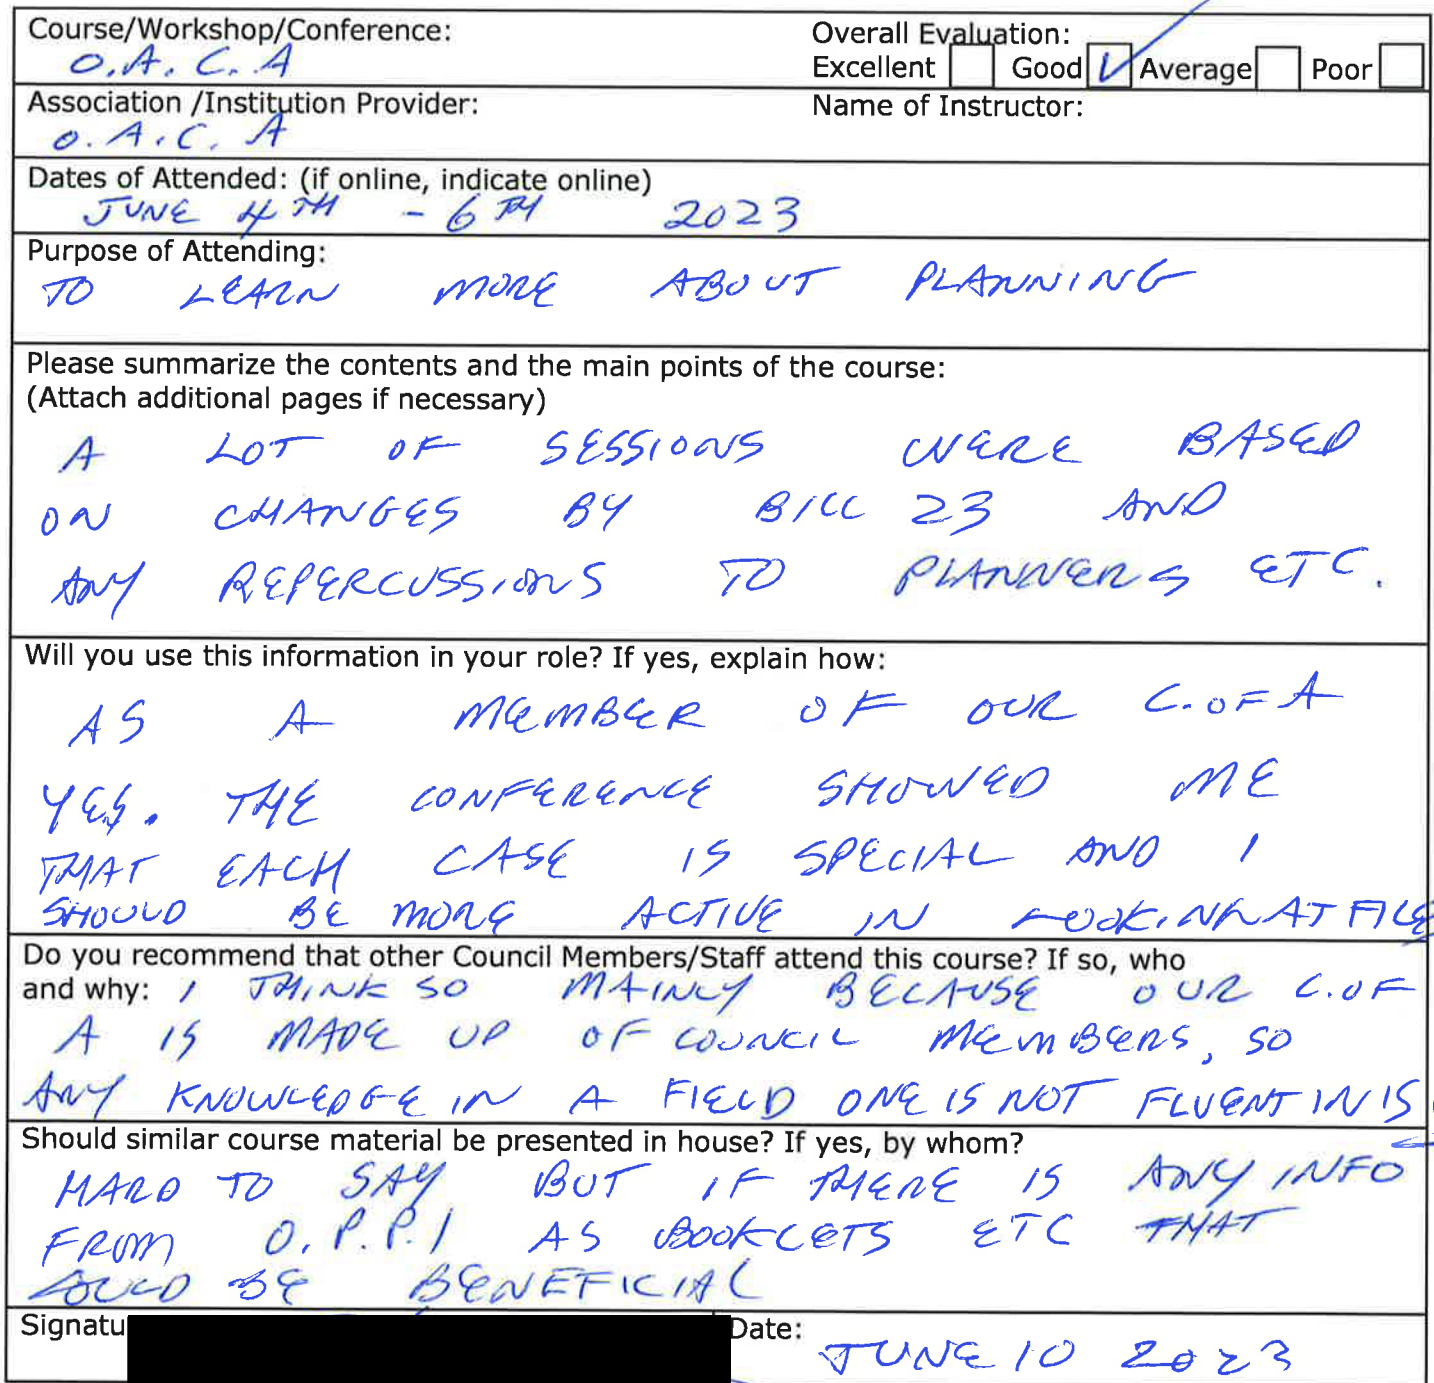 Course/Workshop/Conference:
O.A.C.A
Overall Evaluation:
Excellent Good Average Poor
Association /Institution Provider:
O.A.C.A
Name of Instructor:
Dates of Attended: (if online, indicate online)
JUNE 4TH - 6TH 2023
Purpose of Attending:
TO LEARN MORE ABOUT PLANNING
Please summarize the contents and the main points of the course:
(Attach additional pages if necessary)
A LOT OF SESSIONS WERE BASED
ON CHANGES BY BILL 23 AND
ANY REPERCUSSIONS TO PLANNERS ETC.
Will you use this information in your role? If yes, explain how:
AS A MEMBER OF OUR C. OF A
YES. THE CONFERENCE SHOWED ME
THAT EACH CASE IS SPECIAL AND I
SHOULD BE MORE ACTIVE IN LOOKING AT FILE
Do you recommend that other Council Members/Staff attend this course? If so, who
and why: I THINK SO MAINLY BECAUSE OUR C. OF
A IS MADE UP OF COUNCIL MEMBERS, SO
ANY KNOWLEDGE IN A FIELD ONE IS NOT FLUENT IN IS
Should similar course material be presented in house? If yes, by whom?
HARD TO SAY BUT IF THERE IS ANY INFO
FROM O.P.P.I AS BOOKLETS ETC THAT
COULD BE BENEFICIAL
Signatu
Date: JUNE 10 2023